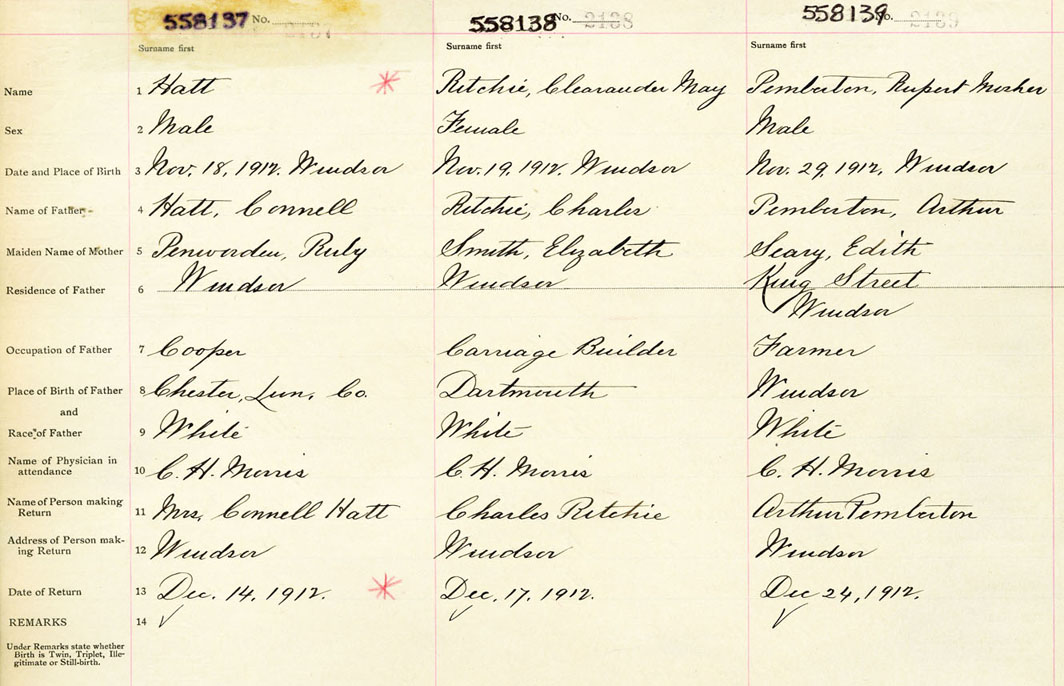 558137 No.
558138 No. 2138
558139 No. 2139
Surname first Surname first Surname first
Name 1 Hatt Ritchie, Clearander May Pemberton, Rupert Mosher
Sex 2 Male Female Male
Date and Place of Birth 3 Nov. 18, 1912. Windsor Nov. 19, 1912. Windsor Nov. 29, 1912, Windsor
Name of Father 4 Hatt, Connell Ritchie, Charles Pemberton, Arthur
Maiden Name of Mother 5 Penworden, Ruby Smith, Elizabeth Seary, Edith
Residence of Father 6 Windsor Windsor King Street
Windsor
Occupation of Father 7 Cooper Carriage Builder Farmer
Place of Birth of Father 8 Chester, Lun. Co. Dartmouth Windsor
and
Race of Father 9 White White White
Name of Physician in
attendance 10 C. H. Morris C. H. Morris C. H. Morris
Name of Person making
Return 11 Mrs. Connell Hatt Charles Ritchie Arthur Pemberton
Address of Person mak-
ing Return 12 Windsor Windsor Windsor
Date of Return 13 Dec. 14, 1912. Dec. 17, 1912. Dec 24, 1912.
REMARKS 14
Under Remarks state whether
Birth is Twin, Triplet, Ille-
gitimate or Still-birth.